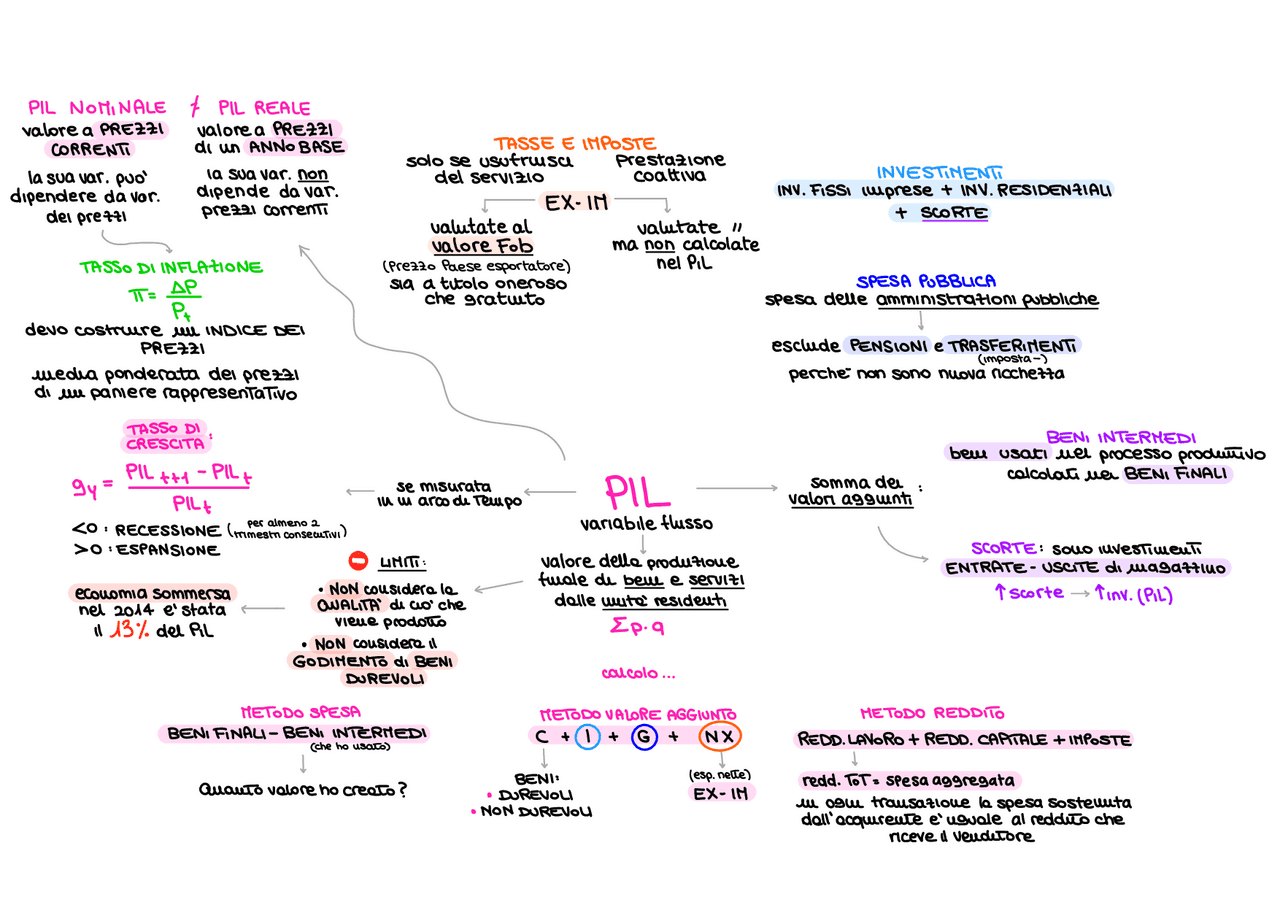 PIL NOMINALE ≠ PIL REALE
valore a PREZZI
CORRENTI
la sua var. può
dipendere da var.
dei prezzi
valore a PREZZI
di un ANNO BASE
la sua var. non
dipende da var.
prezzi correnti
TASSO DI INFLAZIONE
π = ΔP / Pt
devo costruire un INDICE DEI
PREZZI
media ponderata dei prezzi
di un paniere rappresentativo
TASSE E IMPOSTE
solo se usufruisci
del servizio
Prestazione
coattiva
EX-IM
valutate al
valore Fob
(Prezzo Paese esportatore)
sia a titolo oneroso
che gratuito
valutate "
ma non calcolate
nel PIL
INVESTIMENTI
INV. FISSI imprese + INV. RESIDENZIALI
+ SCORTE
SPESA PUBBLICA
spesa delle amministrazioni pubbliche
esclude PENSIONI e TRASFERIMENTI
(imposta-)
perchè non sono nuova ricchezza
TASSO DI
CRESCITA:
gy = PIL t+1 - PIL t / PIL t
<0: RECESSIONE (per almeno 2
trimestri consecutivi)
>0: ESPANSIONE
se misurata
in un arco di tempo
PIL
variabile flusso
valore della produzione
finale di beni e servizi
dalle unità residenti
Σp·q
somma dei
valori aggiunti:
BENI INTERMEDI
beni usati nel processo produttivo
calcolati nei BENI FINALI
SCORTE: sono investimenti
ENTRATE - USCITE di magazzino
↑scorte → ↑inv. (PIL)
⛔ LIMITI:
• NON considera la
QUALITA' di ciò che
viene prodotto
• NON considera il
GODIMENTO di BENI
DUREVOLI
economia sommersa
nel 2014 è stata
il 13% del PIL
calcolo...
METODO SPESA
BENI FINALI - BENI INTERMEDI
(che ho usato)
Quanto valore ho creato?
METODO VALORE AGGIUNTO
C + I + G + NX
BENI:
• DUREVOLI
• NON DUREVOLI
(esp. nette)
EX-IM
METODO REDDITO
REDD. LAVORO + REDD. CAPITALE + IMPOSTE
redd. TOT = spesa aggregata
in ogni transazione la spesa sostenuta
dall'acquirente è uguale al reddito che
riceve il venditore